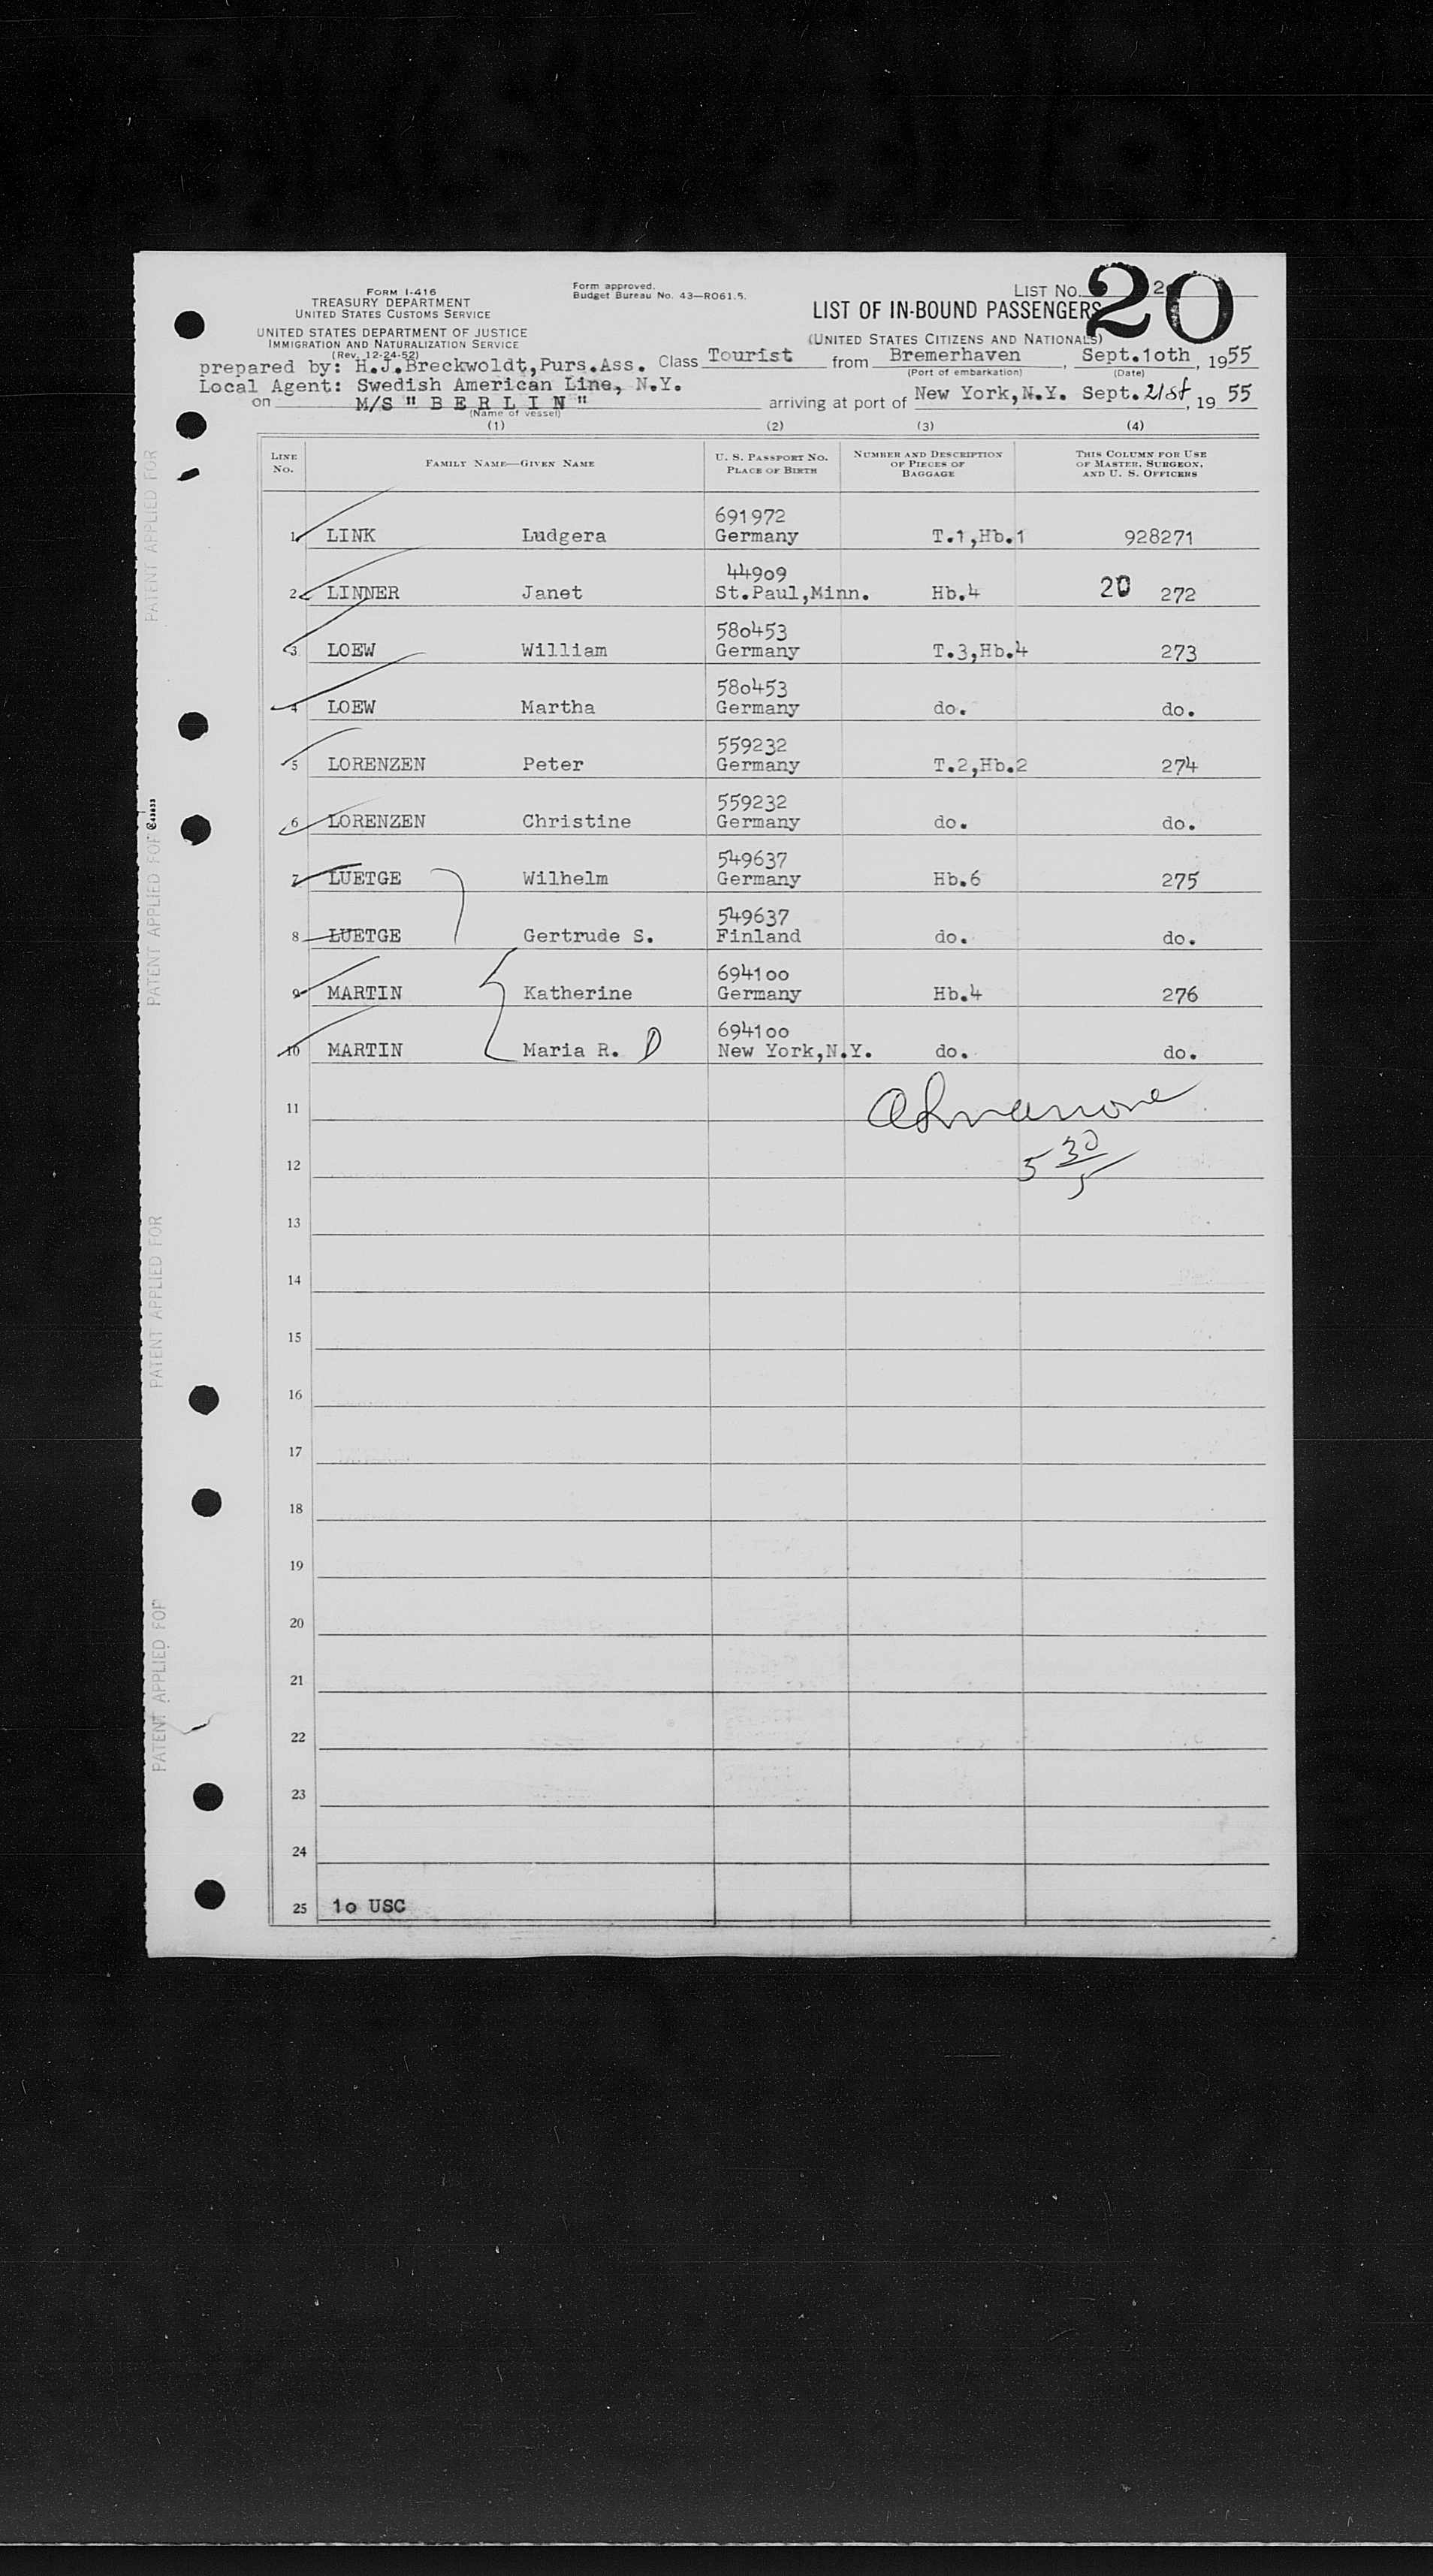 FORM I-416
TREASURY DEPARTMENT
UNITED STATES CUSTOMS SERVICE
UNITED STATES DEPARTMENT OF JUSTICE
IMMIGRATION AND NATURALIZATION SERVICE
(Rev. 12-24-52)
Form approved.
Budget Bureau No. 43—RO61.5.
LIST NO. 2
20
LIST OF IN-BOUND PASSENGERS
(UNITED STATES CITIZENS AND NATIONALS)
prepared by: H.J.Breckwoldt,Purs.Ass. Class Tourist from Bremerhaven, Sept.1oth, 1955
(Port of embarkation) (Date)
Local Agent: Swedish American Line, N.Y.
on M/S " B E R L I N " arriving at port of New York,N.Y. Sept.21st, 1955
(Name of vessel)
(1) (2) (3) (4)
LINE NO. FAMILY NAME—GIVEN NAME U. S. PASSPORT NO. PLACE OF BIRTH NUMBER AND DESCRIPTION OF PIECES OF BAGGAGE THIS COLUMN FOR USE OF MASTER, SURGEON, AND U. S. OFFICERS
691972
1 LINK Ludgera Germany T.1,Hb.1 928271
44909
2 LINNER Janet St.Paul,Minn. Hb.4 20 272
580453
3 LOEW William Germany T.3,Hb.4 273
580453
4 LOEW Martha Germany do. do.
559232
5 LORENZEN Peter Germany T.2,Hb.2 274
559232
6 LORENZEN Christine Germany do. do.
549637
7 LUETGE Wilhelm Germany Hb.6 275
549637
8 LUETGE Gertrude S. Finland do. do.
694100
9 MARTIN Katherine Germany Hb.4 276
694100
10 MARTIN Maria R. D New York,N.Y. do. do.
11
12 5 30/5
13
14
15
16
17
18
19
20
21
22
23
24
25 1o USC
PATENT APPLIED FOR
PATENT APPLIED FOR
PATENT APPLIED FOR
PATENT APPLIED FOR